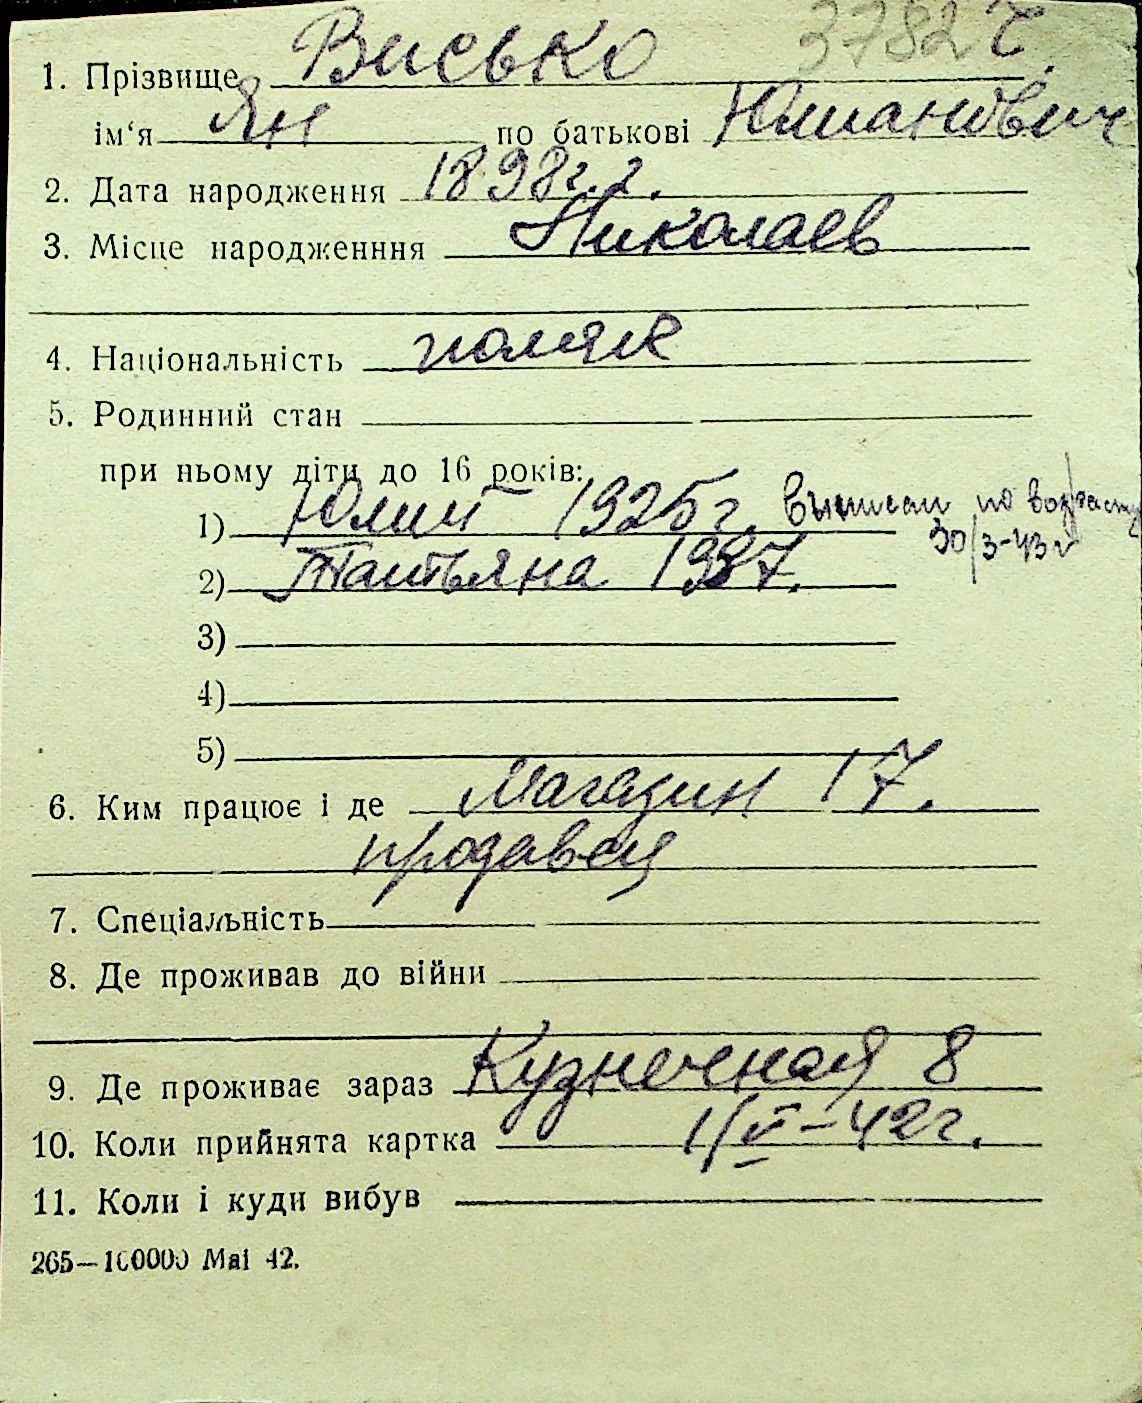 3782 с
1. Прізвище Висько
ім‘я Ян по батькові Юлианович
2. Дата народження 1898 г. г.
3. Місце народженння Николаев
4. Національність поляк
5. Родинний стан
при ньому діти до 16 років:
1) Юлий 1925 г. выписан по возрасту
30/3-43 г
2) Татьяна 1937.
3)
4)
5)
6. Ким працює і де Магазин 17.
продавец
7. Спеціальність
8. Де проживав до війни
9. Де проживає зараз Кузнечная 8
10. Коли прийнята картка 1/V-42 г.
11. Коли і куди вибув
265—100000 Mai 42.